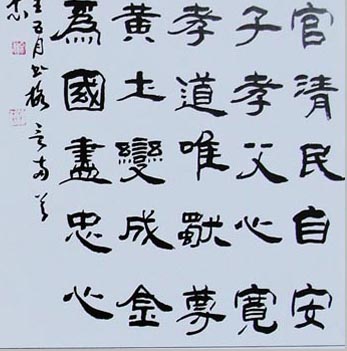 官清民自安
子孝父心寬
孝道唯
黃土變成金
爲國盡忠心
五月書格言兩首